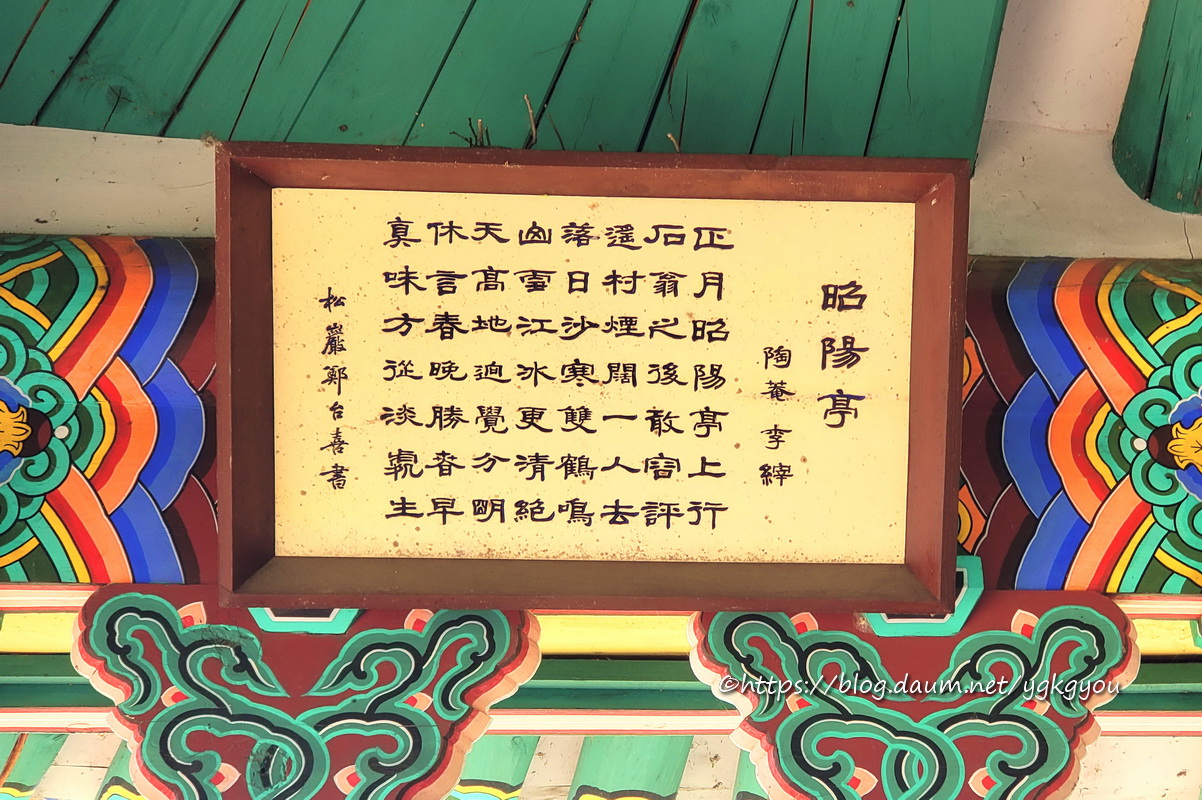 昭陽亭
陶菴 李縡
正月昭陽亭上行
石翁之後敢容評
遥村煙闊一人去
落日沙寒雙鶴鳴
雪江冰更清絶
天高地逈覺分明
休言春晚勝春早
真味方從淡處生
松巖鄭台喜書
©https://blog.daum.net/ygkgyou